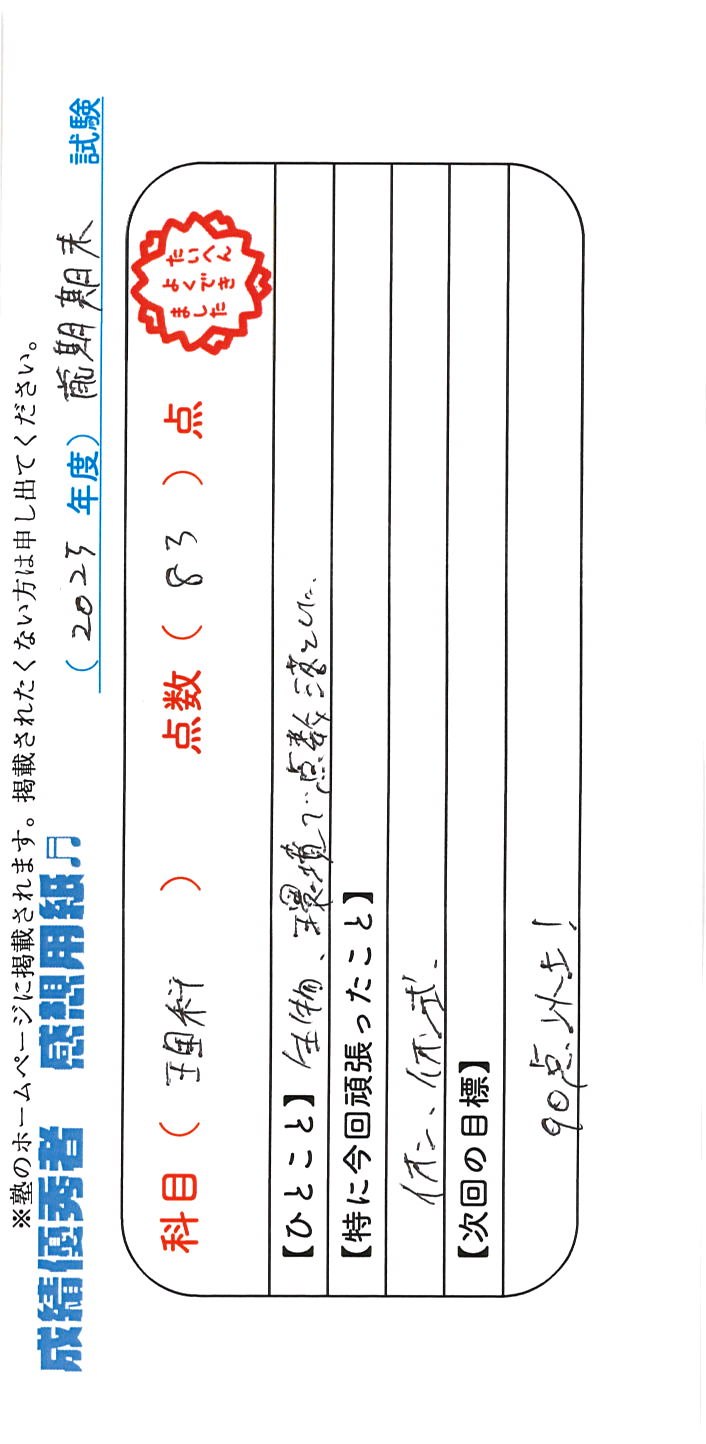 ※塾のホームページに掲載されます。掲載されたくない方は申し出てください。
成績優秀者　感想用紙♫
（2025年度）前期期末　試験
科目（　理科　）　点数（　83　）点
たいへん
よくでき
ました
【ひとこと】生物、環境で点数落とした。
【特に今回頑張ったこと】
イオン、イオン式。
【次回の目標】
90点以上！